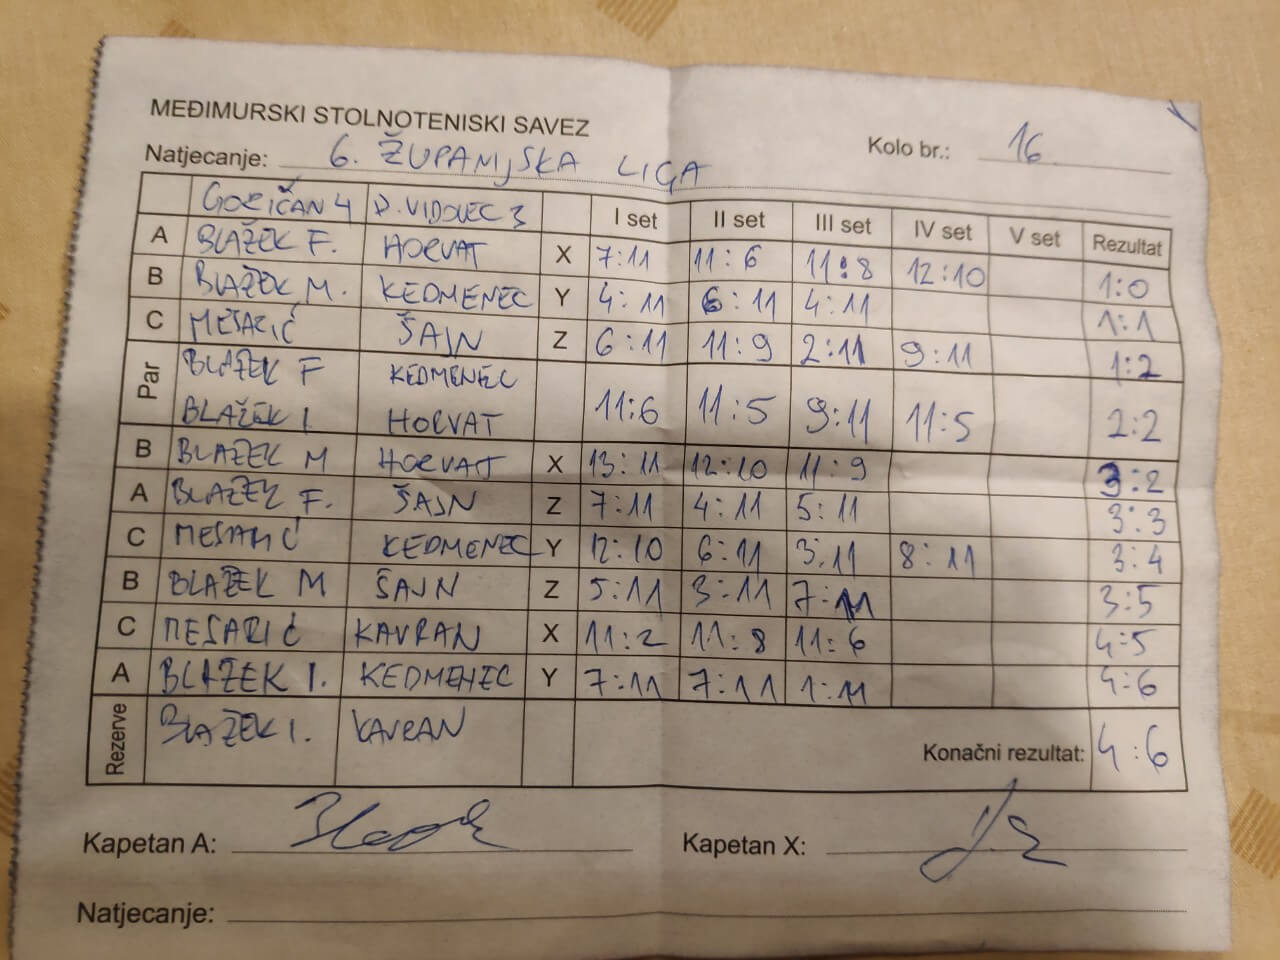 MEĐIMURSKI STOLNOTENISKI SAVEZ
Natjecanje: 6. ŽUPANIJSKA LIGA Kolo br.: 16
GORIČAN 4 D. VIDOVEC 3 I set II set III set IV set V set Rezultat
A BLAŽEK F. HORVAT X 7:11 11:6 11:8 12:10 1:0
B BLAŽEK M. KEDMENEC Y 4:11 6:11 4:11 1:1
C MESARIĆ ŠAJN Z 6:11 11:9 2:11 9:11 1:2
Par BLAŽEK F KEDMENEC
BLAŽEK I. HORVAT 11:6 11:5 9:11 11:5 2:2
B BLAŽEK M HORVAT X 13:11 12:10 11:9 3:2
A BLAŽEK F. ŠAJN Z 7:11 4:11 5:11 3:3
C MESARIĆ KEDMENEC Y 12:10 6:11 3:11 8:11 3:4
B BLAŽEK M ŠAJN Z 5:11 3:11 7:11 3:5
C MESARIĆ KAVRAN X 11:2 11:8 11:6 4:5
A BLAŽEK I. KEDMENEC Y 7:11 7:11 1:11 4:6
Rezerve BLAZEK I. KAVRAN
Konačni rezultat: 4:6
Kapetan A: Kapetan X:
Natjecanje: